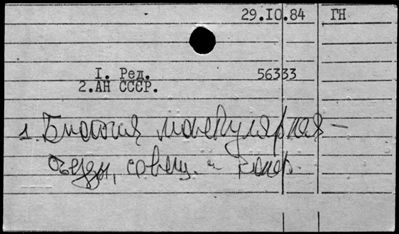 29.IO.84 ГН
I. Ред. 56333
2.АН СССР.
1. Биология молекулярная –
съезды, совещ. и конф.